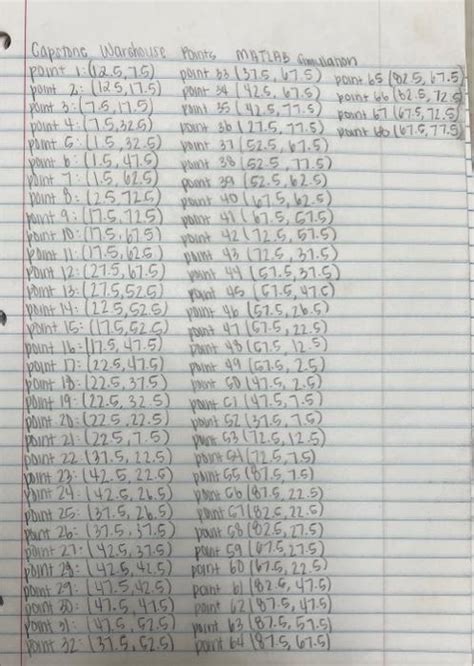 Capstone Warehouse Points MATLAB Simulation
point 1: (12.5, 7.5)
point 2: (12.5, 17.5)
point 3: (7.5, 17.5)
point 4: (7.5, 32.5)
point 5: (1.5, 32.5)
point 6: (1.5, 47.5)
point 7: (1.5, 62.5)
point 8: (2.5, 72.5)
point 9: (17.5, 72.5)
point 10: (17.5, 67.5)
point 11: (17.5, 62.5)
point 12: (27.5, 67.5)
point 13: (27.5, 52.5)
point 14: (22.5, 52.5)
point 15: (17.5, 52.5)
point 16: (17.5, 47.5)
point 17: (22.5, 47.5)
point 18: (22.5, 37.5)
point 19: (22.5, 32.5)
point 20: (22.5, 22.5)
point 21: (22.5, 7.5)
point 22 (37.5, 22.5)
point 23: (42.5, 22.5)
point 24: (42.5, 26.5)
point 25: (37.5, 26.5)
point 26: (37.5, 37.5)
point 27: (42.5, 37.5)
point 28: (42.5, 42.5)
point 29: (47.5, 42.5)
point 30: (47.5, 47.5)
point 31: (47.5, 52.5)
point 32: (37.5, 52.5)
point 33 (37.5, 67.5)
point 34 (42.5, 67.5)
point 35 (42.5, 77.5)
point 36 (27.5, 77.5)
point 37 (52.5, 67.5)
point 38 (52.5, 77.5)
point 39 (52.5, 62.5)
point 40 (67.5, 62.5)
point 41 (67.5, 57.5)
point 42 (72.5, 57.5)
point 43 (72.5, 37.5)
point 44 (57.5, 37.5)
point 45 (57.5, 47.5)
point 46 (57.5, 26.5)
point 47 (57.5, 22.5)
point 48 (57.5, 12.5)
point 49 (57.5, 2.5)
point 50 (47.5, 2.5)
point 51 (47.5, 7.5)
point 52 (37.5, 7.5)
point 53 (72.5, 12.5)
point 54 (72.5, 7.5)
point 55 (87.5, 7.5)
point 56 (87.5, 22.5)
point 57 (82.5, 22.5)
point 58 (82.5, 27.5)
point 59 (67.5, 27.5)
point 60 (67.5, 22.5)
point 61 (82.5, 47.5)
point 62 (87.5, 47.5)
point 63 (87.5, 57.5)
point 64 (87.5, 67.5)
point 65 (82.5, 67.5)
point 66 (82.5, 72.5)
point 67 (67.5, 72.5)
point 68 (67.5, 77.5)